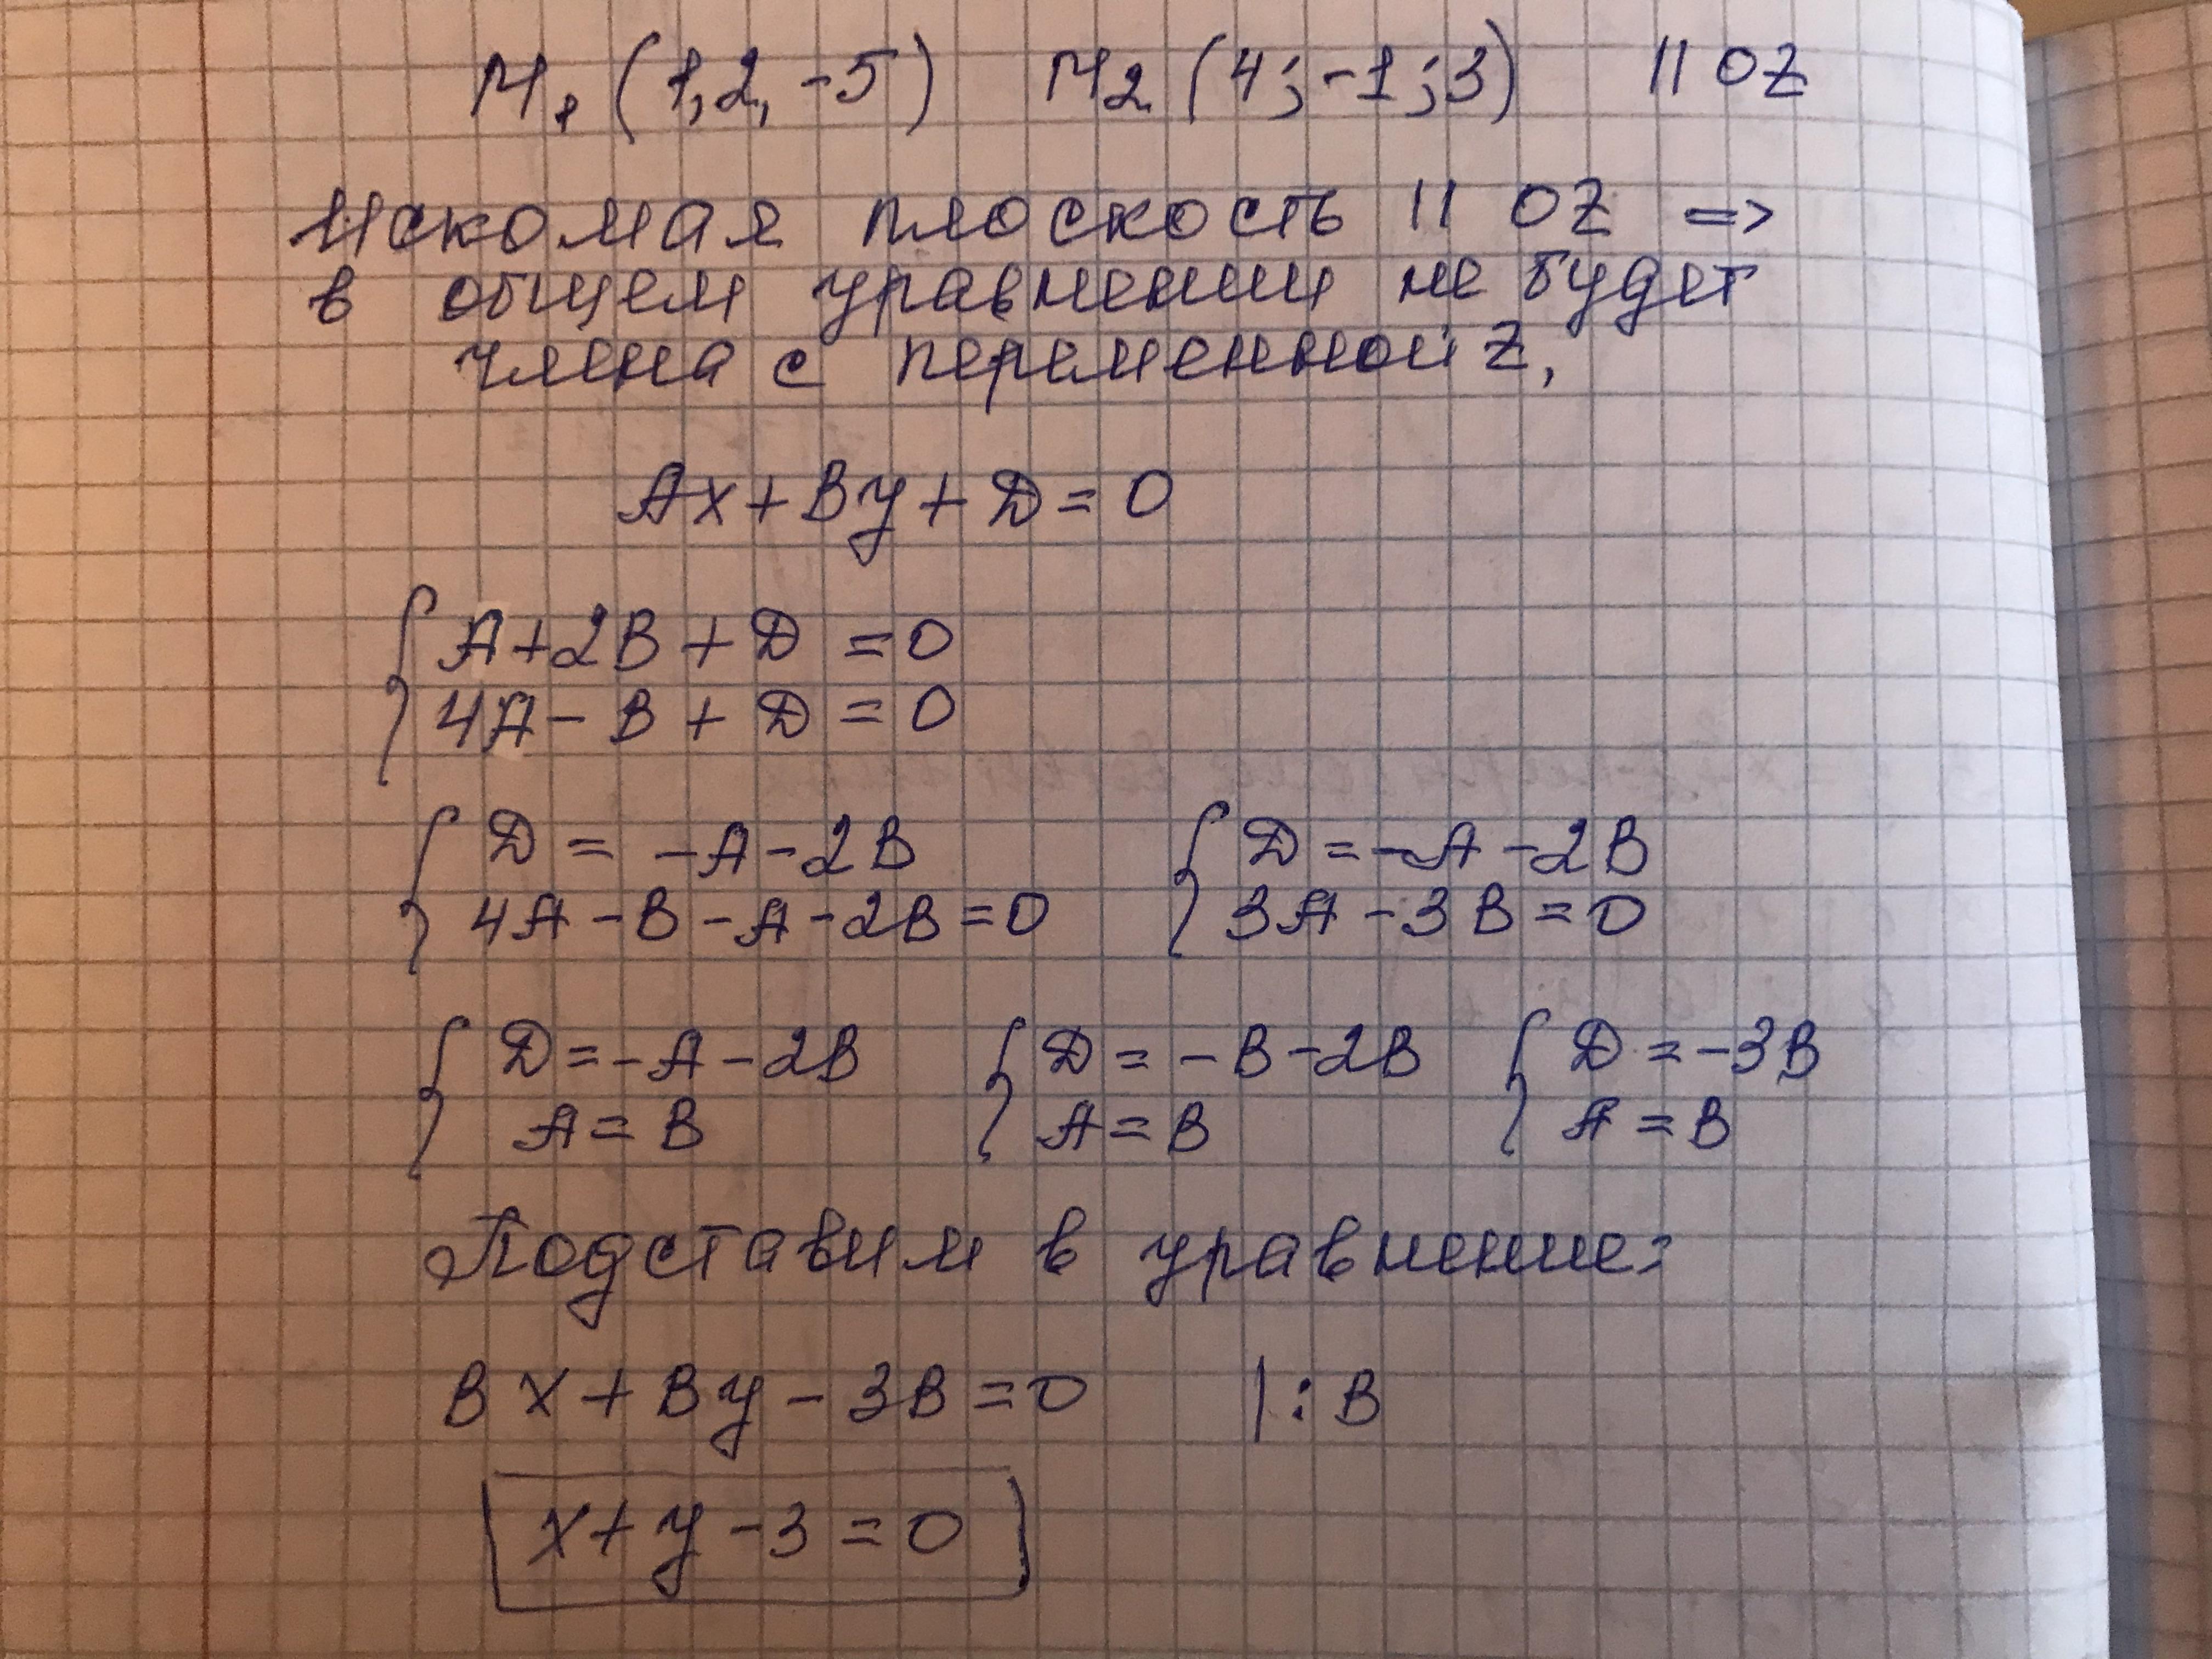 M₁ (1, 2, -5) M₂ (4; -1; 3) || OZ
Искомая плоскость || OZ =>
в общем уравнении не будет
члена с переменной Z,
Ax + By + D = 0
{ A + 2B + D = 0
4A - B + D = 0
{ D = -A - 2B { D = -A - 2B
4A - B - A - 2B = 0 3A - 3B = 0
{ D = -A - 2B { D = -B - 2B { D = -3B
A = B A = B A = B
Подставим в уравнение:
Bx + By - 3B = 0 | : B
x + y - 3 = 0